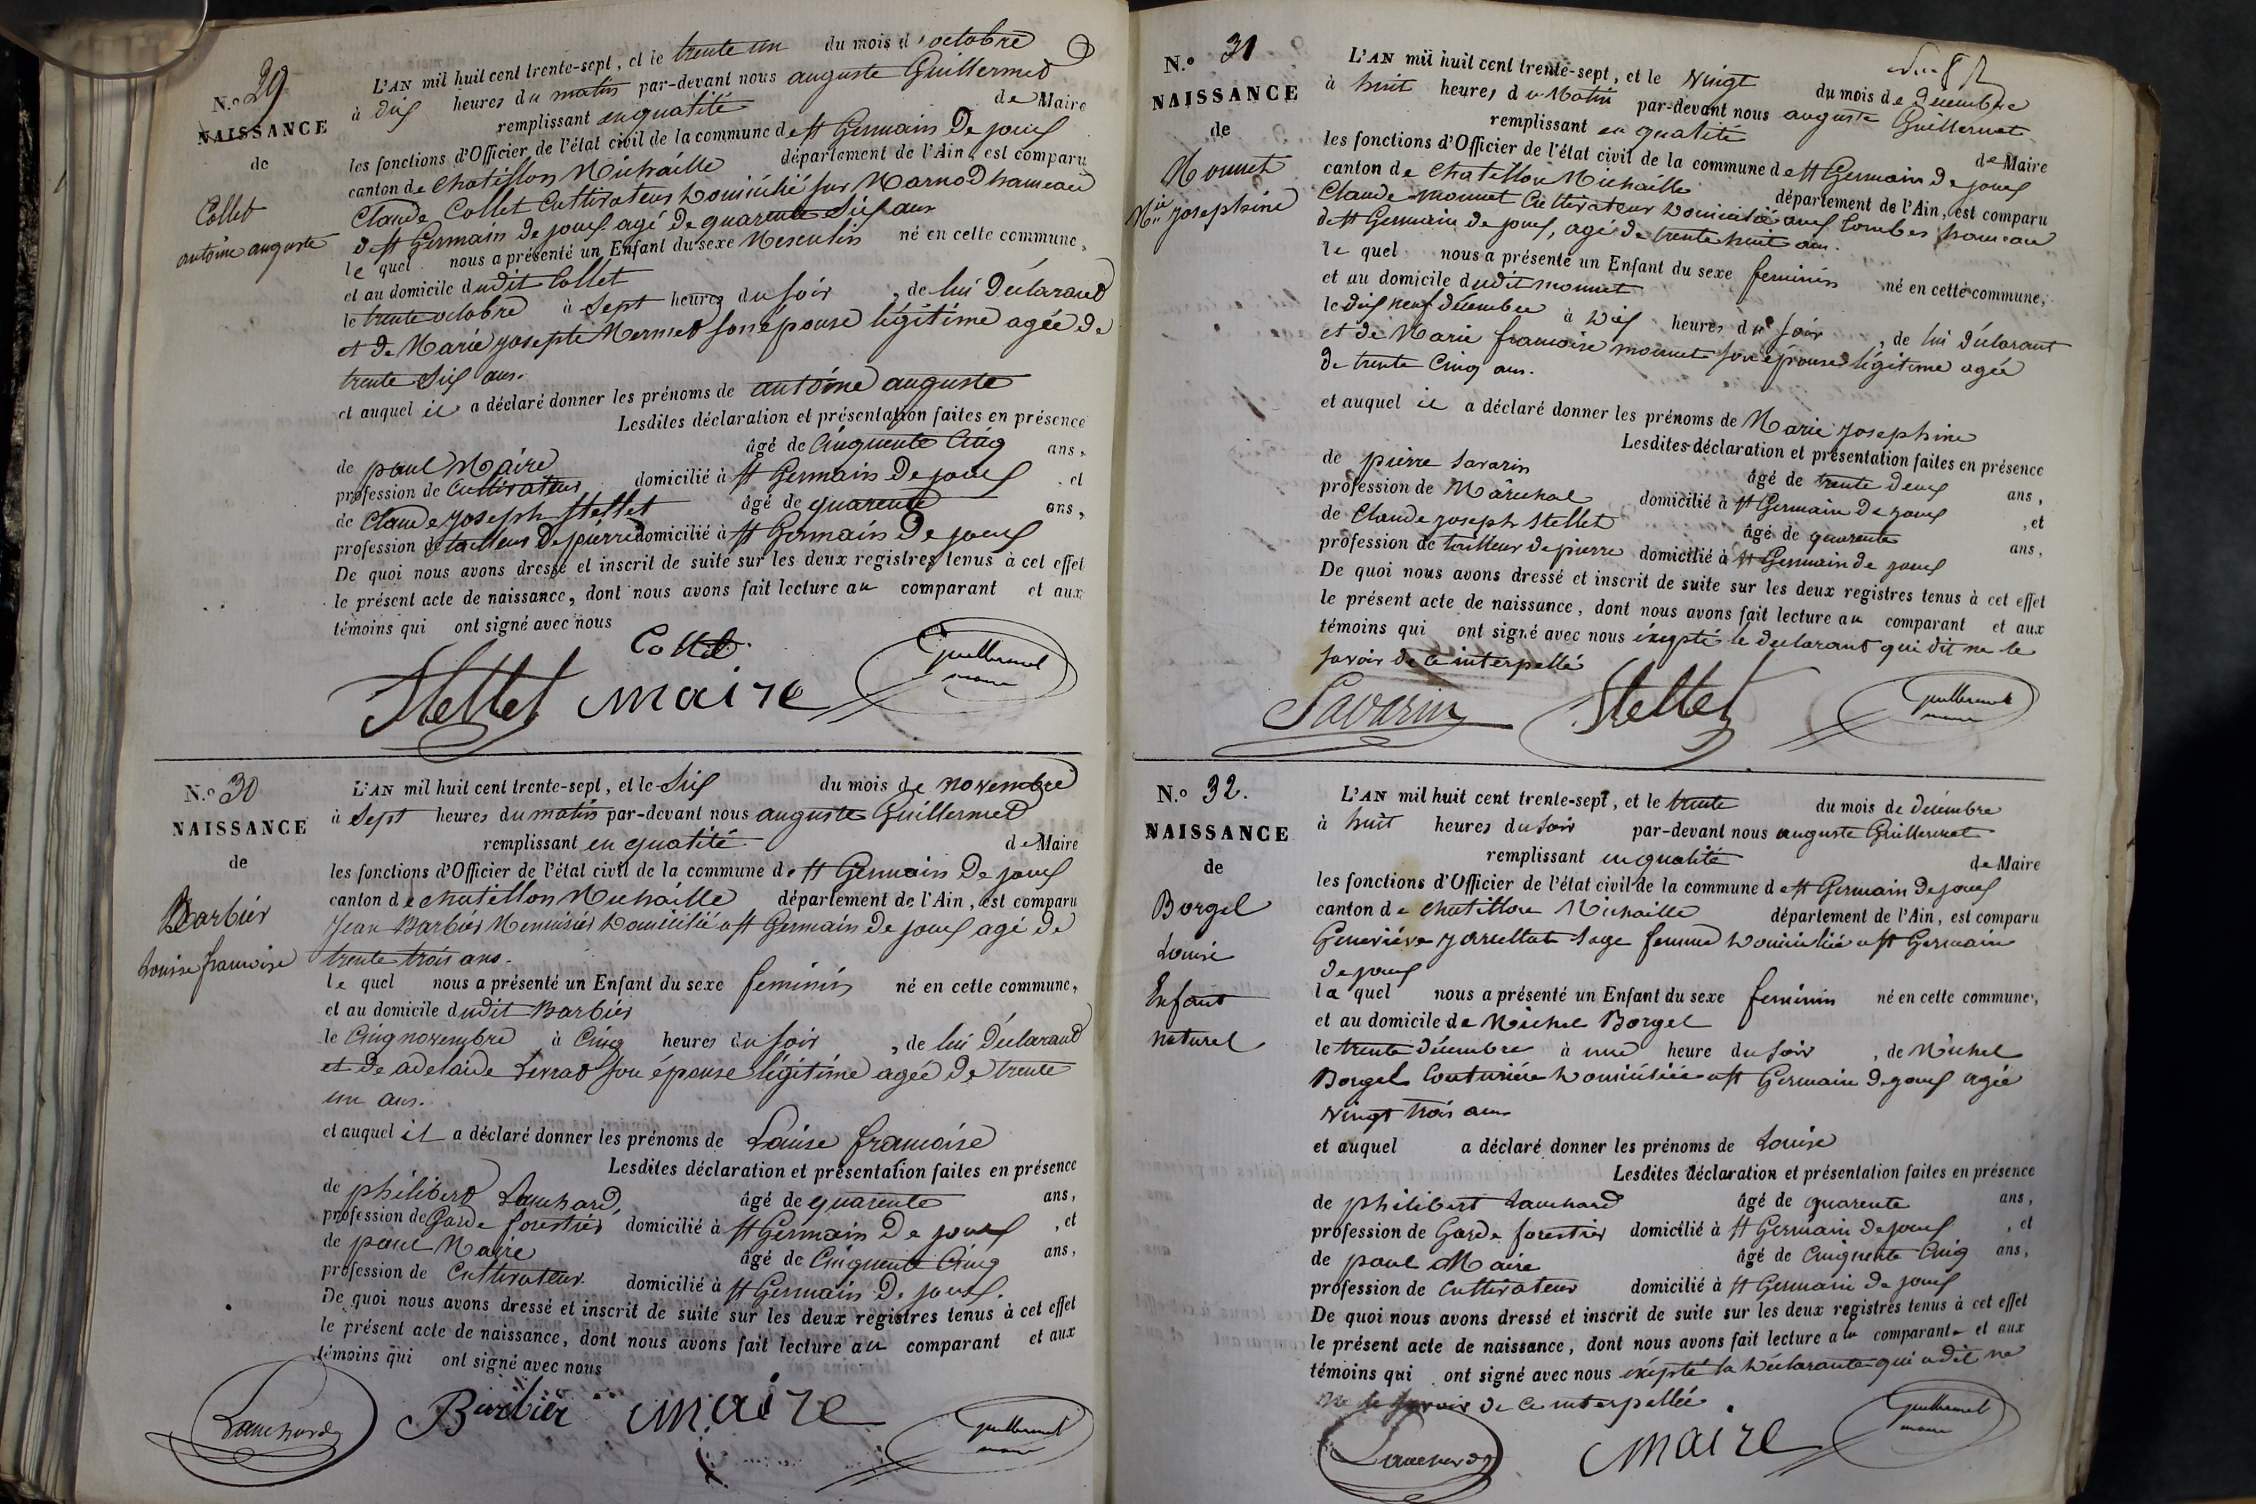 N.o 29
NAISSANCE
de
Collet
antoine auguste
L'AN mil huit cent trente-sept, et le trente un du mois d'octobre
à dix heures du matin par-devant nous auguste Guillermet
remplissant en qualité de Maire
les fonctions d'Officier de l'état civil de la commune de St Germain De joux
canton de Chatillon Michaille département de l'Ain, est comparu
Claude Collet Cultivateur Domicilié sur Marnod hameau
de St Germain de joux agé de quarente six ans
le quel nous a présenté un Enfant du sexe Mesculin né en cette commune,
et au domicile dudit Collet
le trente octobre à sept heures du soir, de lui Déclarant
et de Marie josephte Mermet son epouse légitime agée de
trente six ans.
et auquel il a déclaré donner les prénoms de antoine auguste
Lesdites déclaration et présentation faites en présence
de paul Maire âgé de Cinquente Cinq ans,
profession de Cultivateur domicilié à St Germain De joux, et
de Claude joseph Stellet âgé de quarente ans,
profession de tailleur De pierre domicilié à St Germain De joux
De quoi nous avons dressé et inscrit de suite sur les deux registres tenus à cet effet
le présent acte de naissance, dont nous avons fait lecture au comparant et aux
témoins qui ont signé avec nous
Collet
Stellet maire Guillermet
maire
N.o 30
NAISSANCE
de
Barbier
Louise francoise
L'AN mil huit cent trente-sept, et le Six du mois de novembre
à Sept heures du matin par-devant nous auguste Guillermet
remplissant en qualité de Maire
les fonctions d'Officier de l'état civil de la commune de St Germain De joux
canton de chatillon Michaille département de l'Ain, est comparu
Jean Barbier Menuisier Domicilié a St Germain De joux agé De
trente trois ans.
le quel nous a présenté un Enfant du sexe feminin né en cette commune,
et au domicile dudit Barbier
le Cinq novembre à Cinq heures du soir, de lui Déclarant
et de adelaide Livrat son épouse légitime agée De trente
un ans.
et auquel il a déclaré donner les prénoms de Louise francoise
Lesdites déclaration et présentation faites en présence
de philibert Lanchard, âgé de quarente ans,
profession de Garde forestier domicilié à St Germain De joux, et
de paul Maire âgé de Cinquente Cinq ans,
profession de Cultivateur domicilié à St Germain De joux.
De quoi nous avons dressé et inscrit de suite sur les deux registres tenus à cet effet
le présent acte de naissance, dont nous avons fait lecture au comparant et aux
témoins qui ont signé avec nous
Lanchard Barbier maire Guillermet
maire
N.o 31
NAISSANCE
de
Monnet
Mie josephine
L'AN mil huit cent trente-sept, et le Vingt du mois de Décembre
à huit heures du Matin par-devant nous auguste Guillermet
remplissant en qualité de Maire
les fonctions d'Officier de l'état civil de la commune de St Germain De joux
canton de Chatillon Michaille département de l'Ain, est comparu
Claude Monnet Cultivateur Domicilié aux Combes hameau
de St Germain de joux, agé de trente huit ans.
le quel nous a présenté un Enfant du sexe feminin né en cette commune,
et au domicile dudit monnet
le dix neuf décembre à Dix heures du soir, de lui déclarant
et de Marie francoise monnet son épouse légitime agée
de trente Cinq ans.
et auquel il a déclaré donner les prénoms de Marie josephine
Lesdites déclaration et présentation faites en présence
de pierre savarin âgé de trente deux ans,
profession de Maréchal domicilié à St Germain De joux, et
de Claude joseph Stellet âgé de quarente ans,
profession de tailleur de pierre domicilié à St Germain de joux
De quoi nous avons dressé et inscrit de suite sur les deux registres tenus à cet effet
le présent acte de naissance, dont nous avons fait lecture au comparant et aux
témoins qui ont signé avec nous éxepté le declarant qui dit ne le
savoir de ce interpellé
Savarin Stellet Guillermet
maire
N.o 32.
NAISSANCE
de
Borgel
Louise
Enfant
naturel
L'AN mil huit cent trente-sept, et le trente du mois de décembre
à huit heures du soir par-devant nous auguste Guillermet
remplissant en qualité de Maire
les fonctions d'Officier de l'état civil de la commune de St Germain De joux
canton de Chatillon Michaille département de l'Ain, est comparu
Geneviéve sage femme Domiciliée a St Germain
de joux
la quel nous a présenté un Enfant du sexe feminin né en cette commune,
et au domicile de Michel Borgel
le trente décembre à une heure du soir, de Michel
Borgel Couturiére Domiciliée a St Germain De joux agée
Vingt trois ans
et auquel a déclaré donner les prénoms de Louise
Lesdites déclaration et présentation faites en présence
de philibert Lanchard âgé de quarente ans,
profession de Garde forestier domicilié à St Germain De joux, et
de paul Maire âgé de Cinquente Cinq ans,
profession de Cultivateur domicilié à St Germain de joux
De quoi nous avons dressé et inscrit de suite sur les deux registres tenus à cet effet
le présent acte de naissance, dont nous avons fait lecture a la comparante et aux
témoins qui ont signé avec nous éxépté la Déclarante qui a dit ne
ne le savoir de ce interpellée
Lanchard maire Guillermet
maire